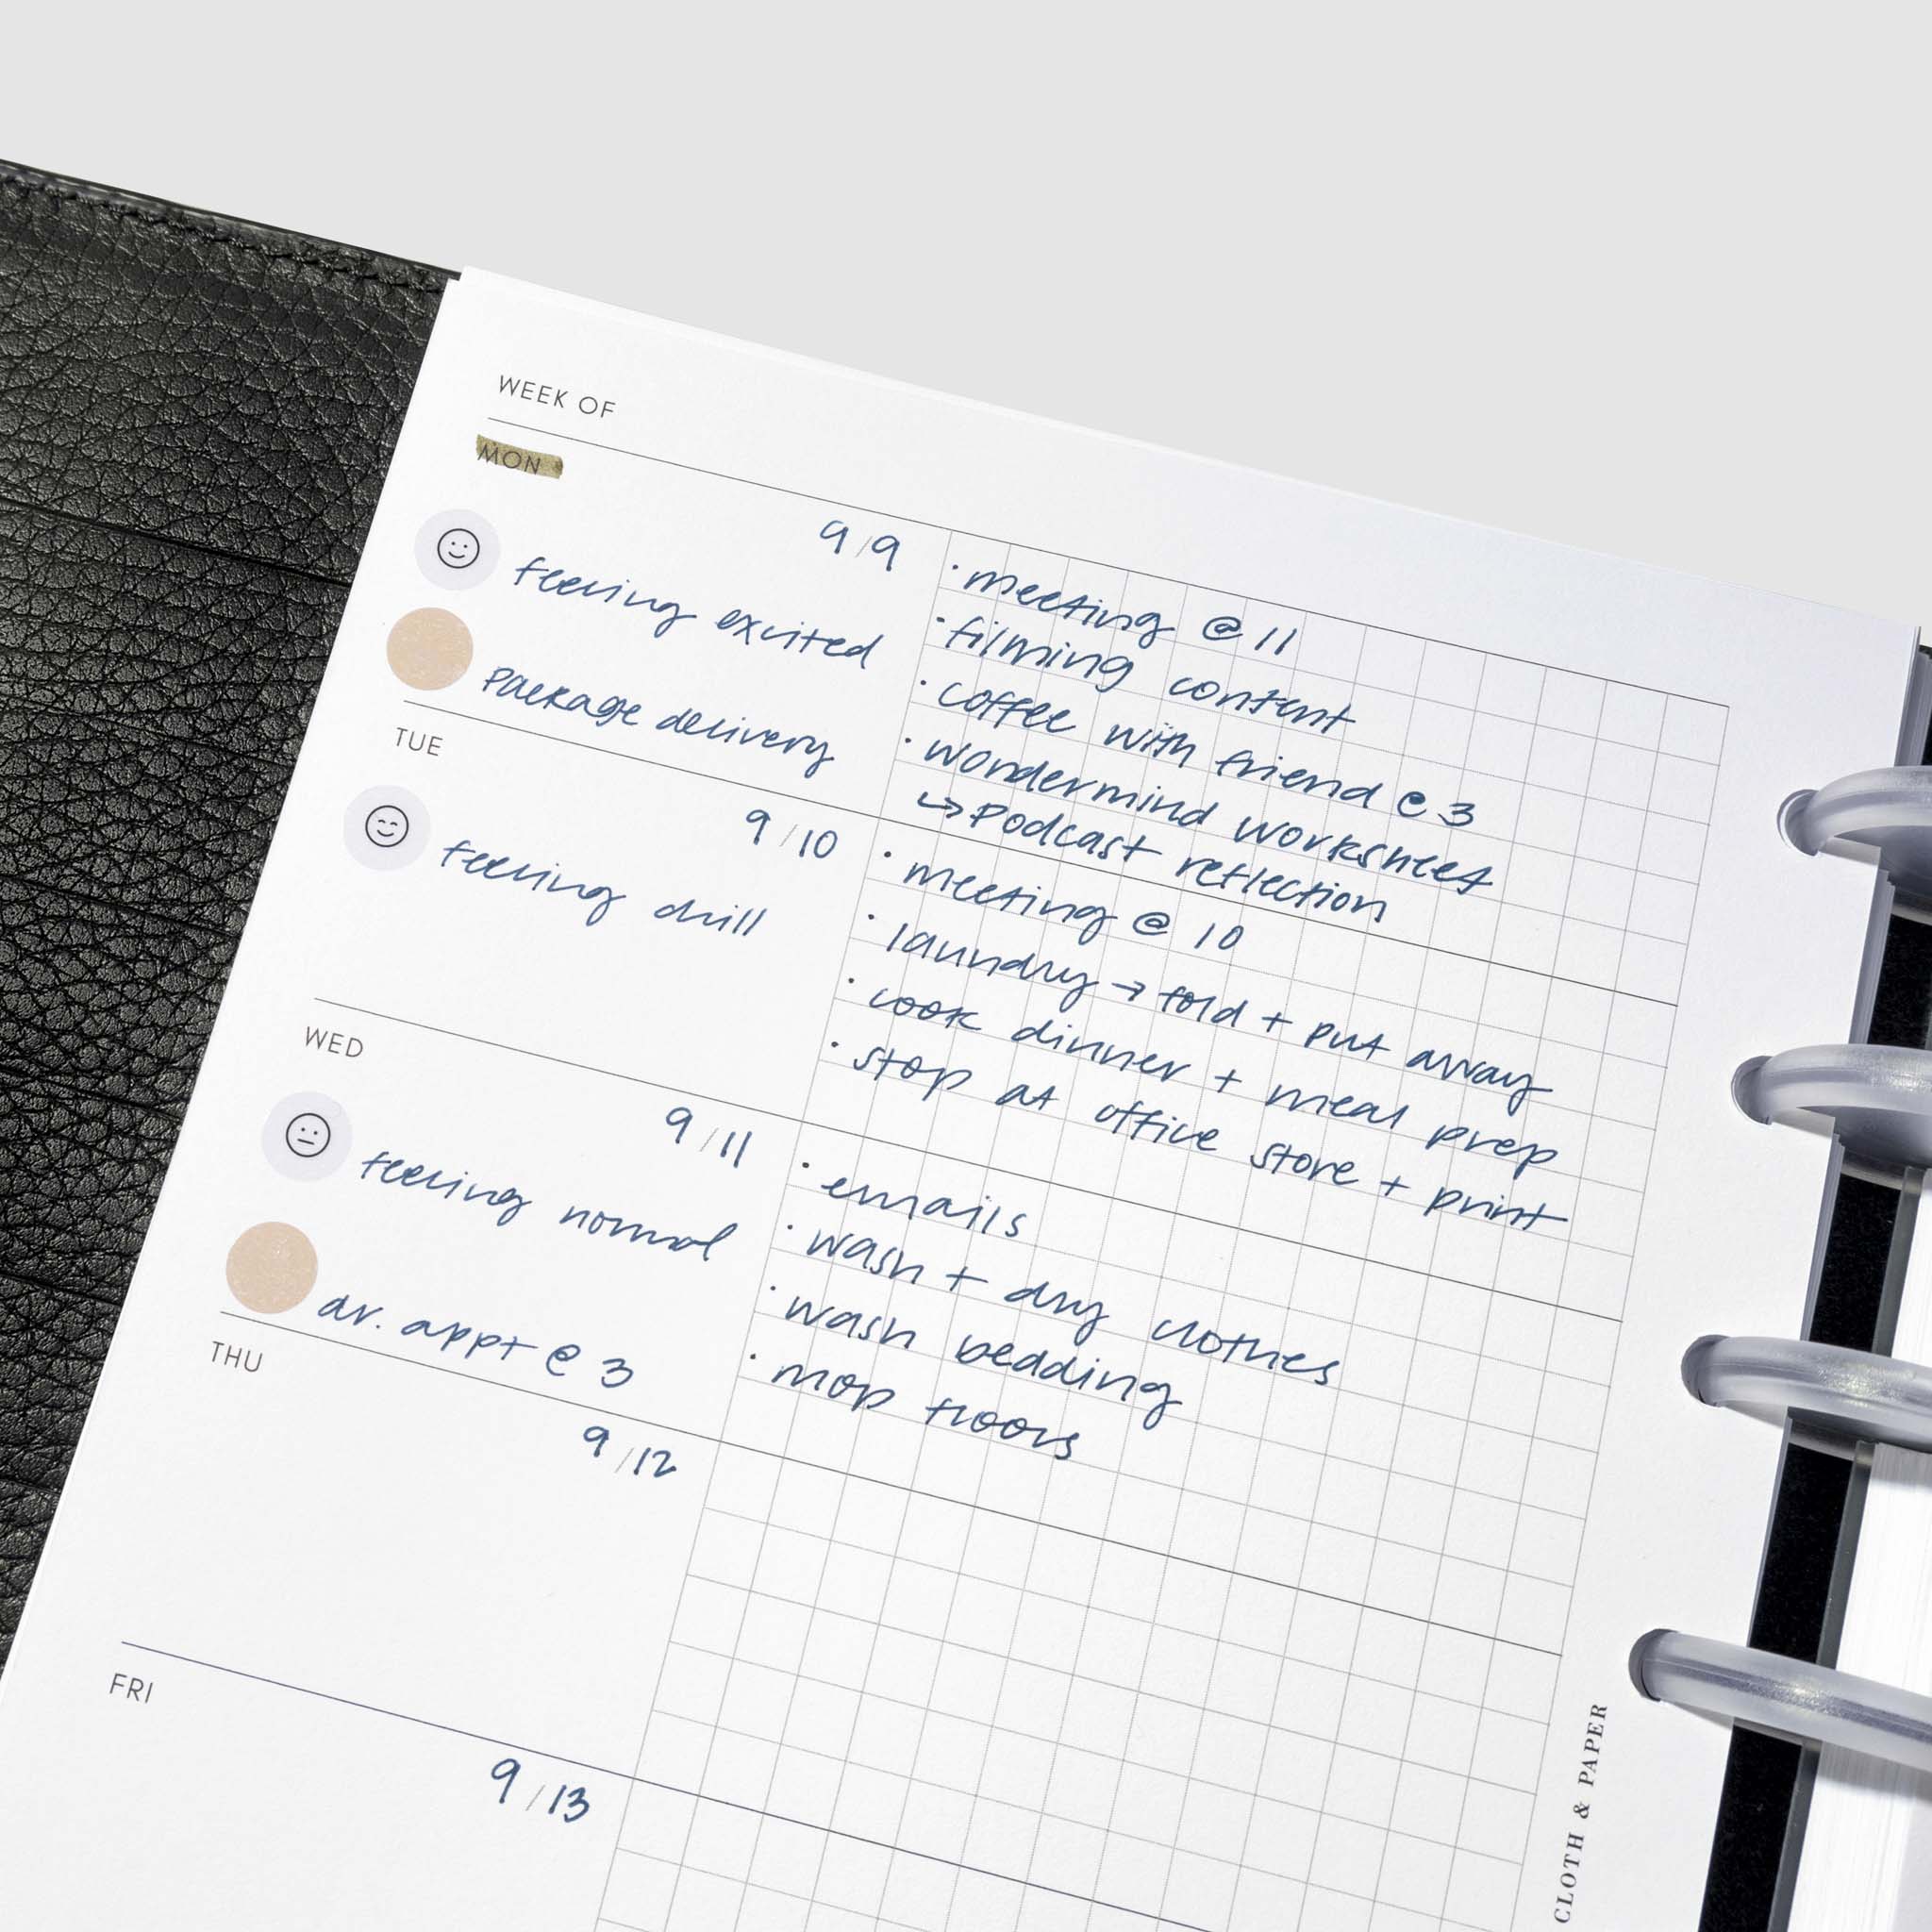 WEEK OF
MON
9/9
feeling excited
Package delivery
· meeting @ 11
· filming content
· coffee with friend @ 3
· wondermind worksheet
↳ Podcast reflection
TUE
9/10
feeling chill
· meeting @ 10
· laundry → fold + put away
· cook dinner + meal prep
· stop at office store + print
WED
9/11
feeling normal
dr. appt @ 3
· emails
· wash + dry clothes
· wash bedding
· mop floors
THU
9/12
FRI
9/13
CLOTH & PAPER